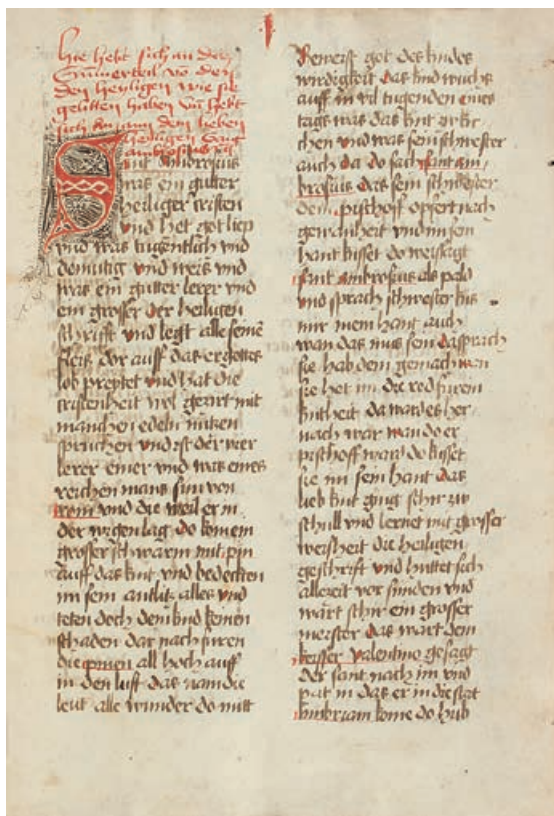 Hie hebt sich an der
Summerteil vo den
den heyligen wie sie
gelitten haben vnd hebt
sich an an dem lieben
heiligen Sant
ambrosius
Sant Ambrosius
was ein gutter
heiliger cristen
vnd het got liep
vnd was tugentlich vnd
demutig vnd weis vnd
was ein gutter lerer vnd
ein grosser der heiligen
schrifft vnd legt alle seinē
fleis dor auff das er gottes
lob prediget vnd hat die
cristenheit wol geziert mit
manchen edeln nutzen
spruchen vnd ist der vier
lerer einer vnd was eines
reichen mans sun von
rom vnd die weil er in
der wigen lag do kom ein
grosser schwarm mit pin
auff das kint vnd bedeckten
im sein antlitz alles vnd
teten doch dem kind keinen
schaden dar nach furen
die pinen all hoch auff
in den luft das nam die
leut alle wunder do mitt
Beweist got des kindes
wirdigkeit das kind wuchs
auff in vil tugenden eines
tags was das kint zu kir
chen vnd was sein schwester
auch da do sach sant am
brosius das sein schwester
dem pischoff opfert nach
gewonheit vnd im sein
hant kisset do weissagt
sant ambrosius als pald
vnd sprach schwester kis
mir mein hant auch
wan das mus sein da sprach
sie hab dein gemach wan
sie het im die red fur ein
kintheit da ward es her
nach war wan do er
pischoff ward do kisset
sie im sein hant das
lieb kint ging schir zu
schull vnd lernet mit grosser
weisheit die heiligen
geschrift vnd huttet sich
allezeit vor sunden vnd
wart schir ein grosser
meister das wart dem
keisser valentino gesagt
der sant nach im vnd
pat in das er in die stat
ambriam kome do hub